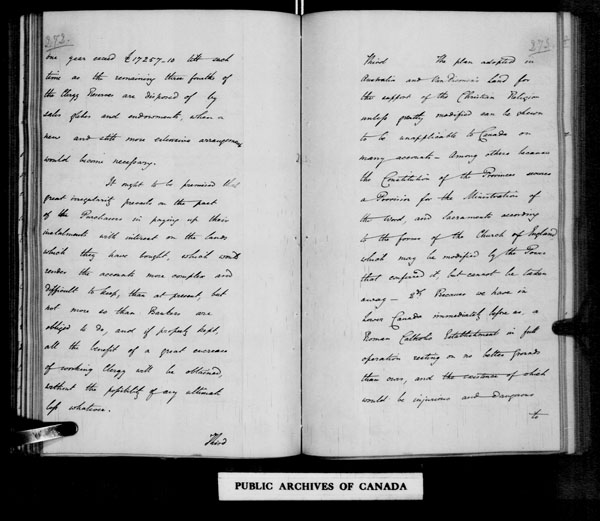 373.
one year exceed £17257-10 till such
time as the remaining three fourths of
the Clergy Reserves are disposed of by
sales glebes and endowments, when a
new and still more extensive arrangement
would become necessary.
It ought to be premised that
great irregularity prevails on the part
of the Purchasers in paying up their
instalments with interest on the lands
which they have bought, which would
render the accounts more complex and
difficult to keep, than at present, but
not more so than Bankers are
obliged to do, and if properly kept,
all the benefit of a great encrease
of working Clergy will be obtained
without the possibility of any ultimate
loss whatever.
Third
375.
Third The plan adopted in
Australia and Van Diemen's Land for
the support of the Christian Religion
unless greatly modified can be shewn
to be unapplicable to Canada on
many accounts – Among others because
the Constitution of the Province secures
a Provision for the Ministration of
the Word, and Sacraments according
to the forms of the Church of England
which may be modified by the Power
that conferred it, but cannot be taken
away – Because we have in
Lower Canada immediately before us, a
Roman Catholic Establishment in full
operation resting on no better grounds
than ours, and the existence of which
would be injurious and dangerous
to
PUBLIC ARCHIVES OF CANADA